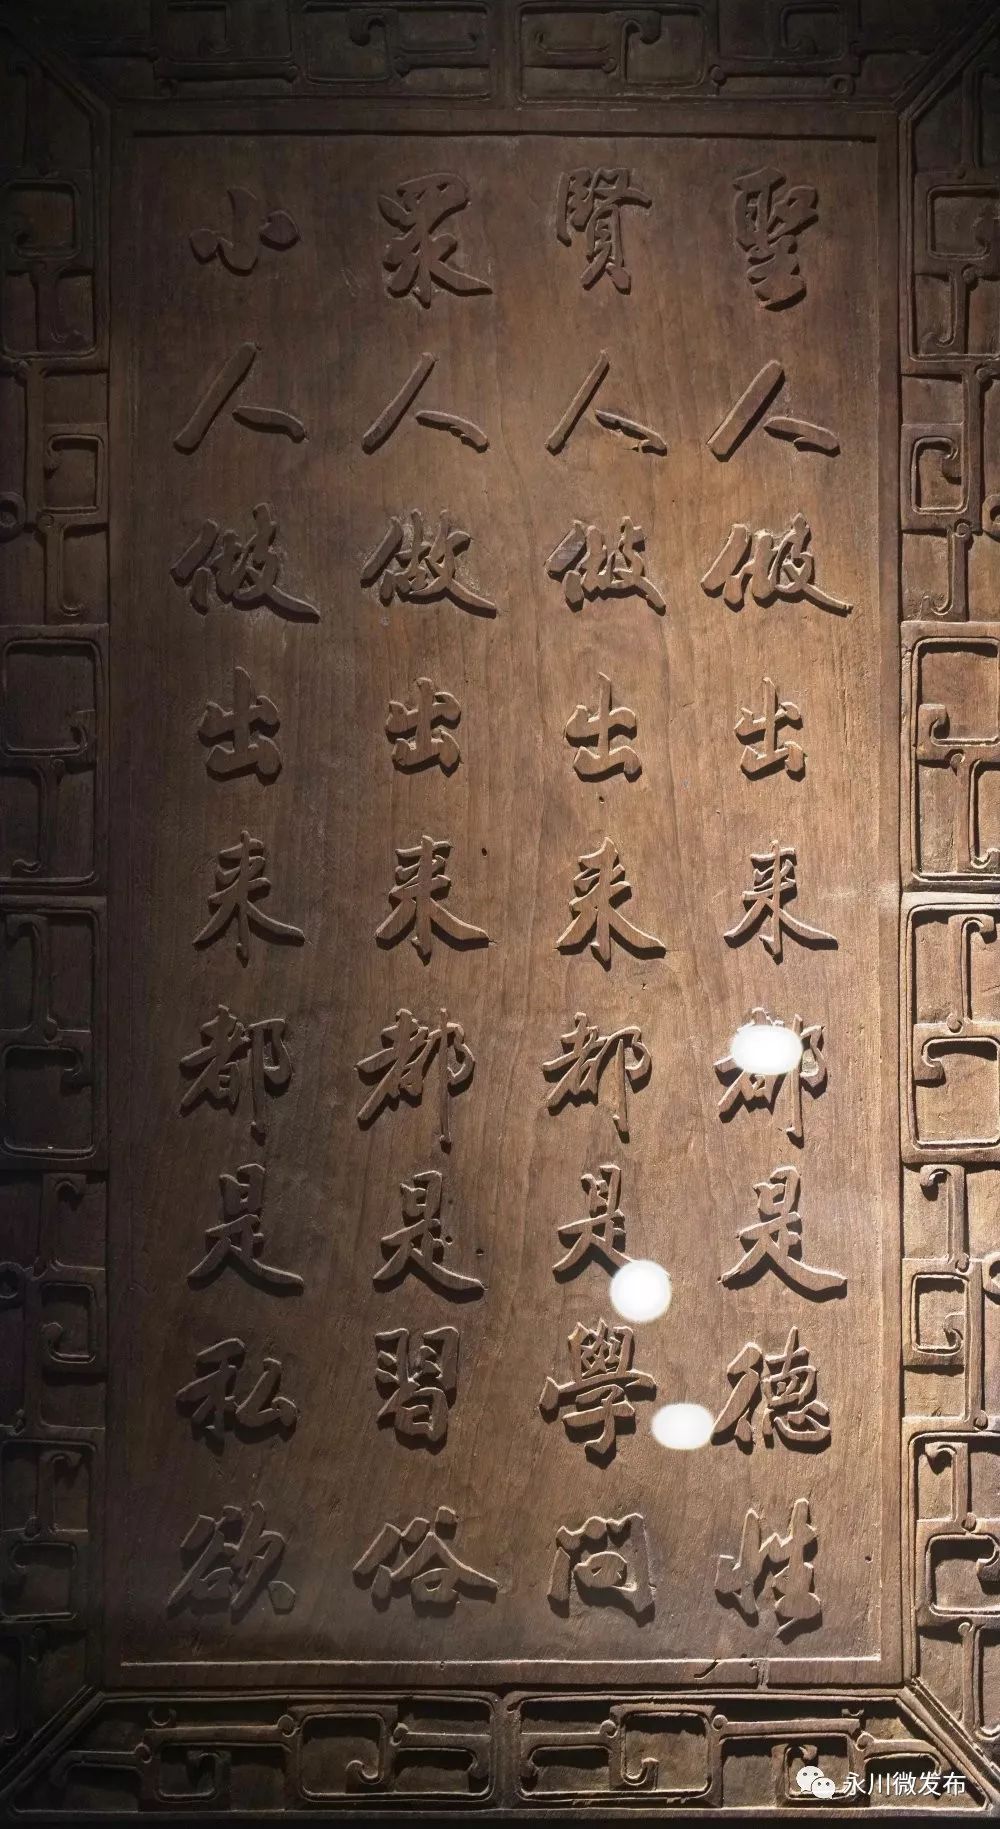 聖人做出来都是德性
賢人做出来都是學問
眾人做出来都是習俗
小人做出来都是私欲
永川微发布